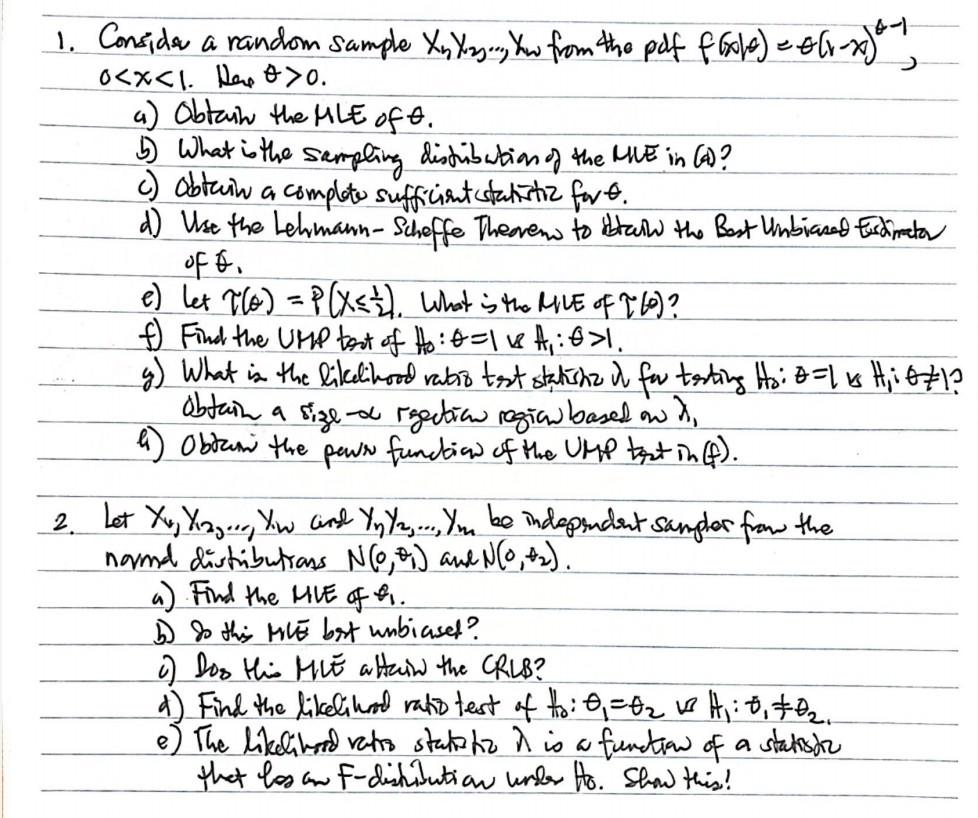 1. Consider a random sample X₁, X₂, ..., Xₙ from the pdf f(x|θ) = θ(1-x)^(θ-1),
0<x<1. Here θ>0.
a) Obtain the MLE of θ.
b) What is the sampling distribution of the MLE in (a)?
c) Obtain a complete sufficient statistic for θ.
d) Use the Lehmann-Scheffe Theorem to obtain the Best Unbiased Estimator
of θ.
e) Let τ(θ) = P(X≤½). What is the MLE of τ(θ)?
f) Find the UMP test of H₀: θ=1 vs H₁: θ>1.
g) What is the likelihood ratio test statistic λ for testing H₀: θ=1 vs H₁: θ≠1?
Obtain a size-α rejection region based on λ.
h) Obtain the power function of the UMP test in (f).
2. Let X₁, X₂, ..., Xₙ and Y₁, Y₂, ..., Yₘ be independent samples from the
normal distributions N(0, θ₁) and N(0, θ₂).
a) Find the MLE of θ₁.
b) Is this MLE best unbiased?
c) Does this MLE attain the CRLB?
d) Find the likelihood ratio test of H₀: θ₁=θ₂ vs H₁: θ₁≠θ₂.
e) The likelihood ratio statistic λ is a function of a statistic
that has an F-distribution under H₀. Show this!